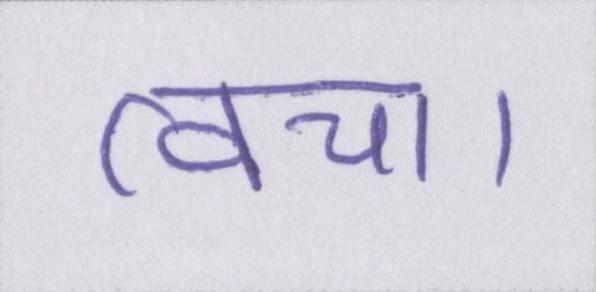 त्वचा।